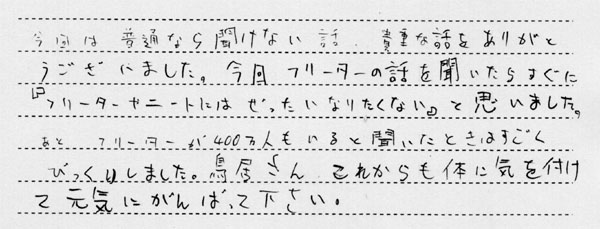 今回は普通なら聞けない話、貴重な話をありがと
うございました。今回フリーターの話を聞いたらすぐに
『フリーターやニートにはぜったいなりたくない』と思いました。
あと フリーターが400万人もいると聞いたときはすごく
びっくりしました。鳥居さん これからも体に気を付け
て元気にがんばって下さい。